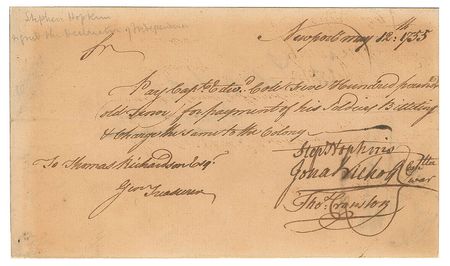 Stephen Hopkins
Signed the Declaration of Independence
Newport may 12:th 1755
Sr
Pay Capt. Edwd. Cole five Hundred pounds
old Tenor for payment of his Soldiers Billeting
& Charge the same to the Colony
Step Hopkins
To Thomas Richardson Esqr.
Jona Nichols Comtte war
Genl Treasurer
Tho. Cranston